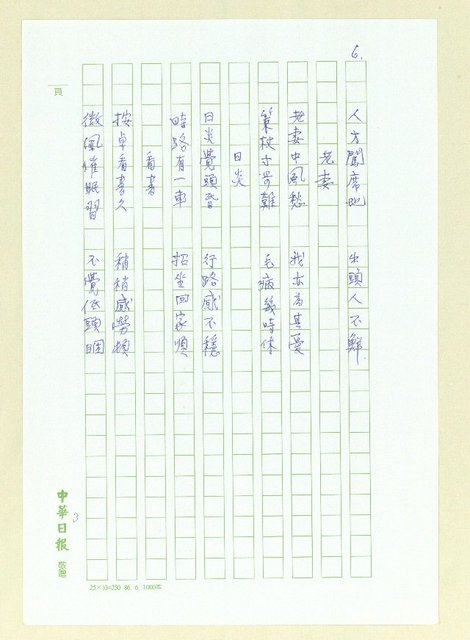 6.
頁
人方闆席地 坐頭人不鮮.
老妻
老妻中風愁 我亦為其憂
策杖寸步難 毛病幾時休
日炎
日炎覺頭昏 行路感不穩
時路有一車 招坐回家順
看書
按卓看書久 稍稍感勞頓
微風催眠習 不覺低頭睏
中華日報
3
25×10=250 86. 6. 1000本